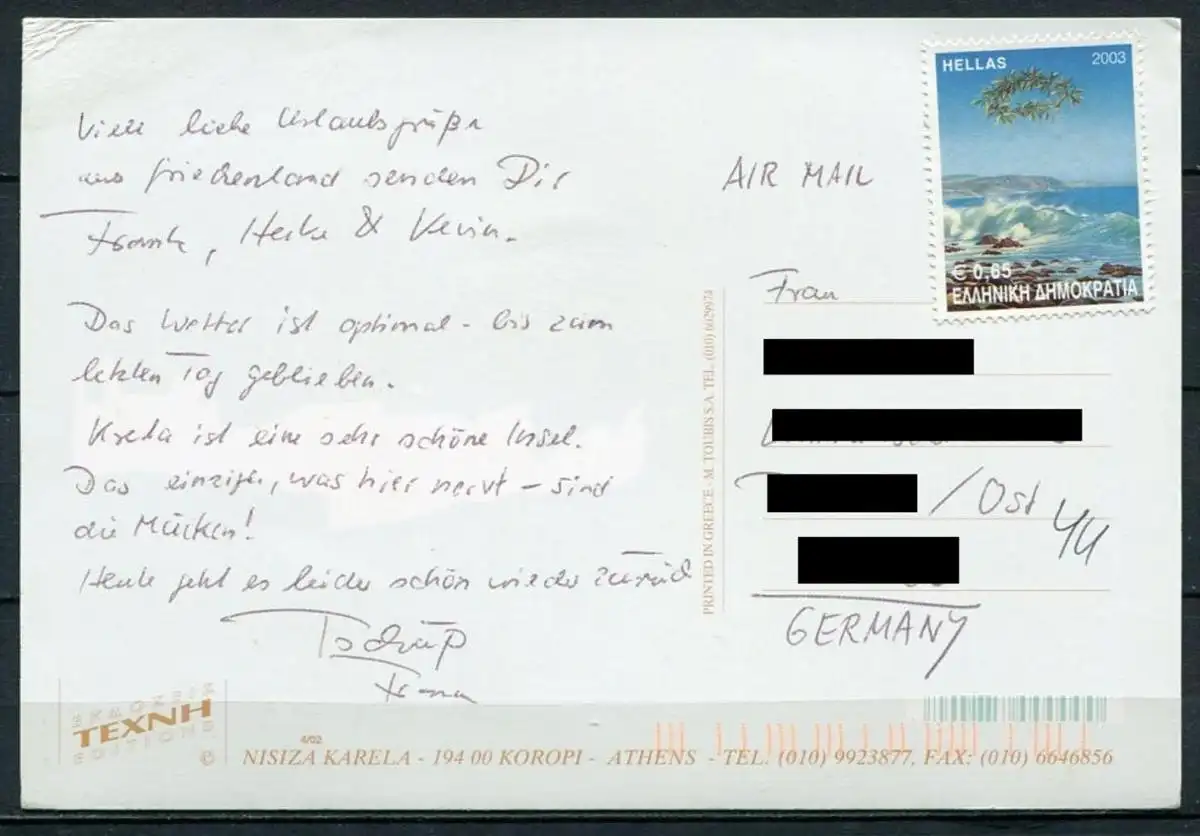 Viele liebe Urlaubsgrüße
aus Griechenland senden Dir
Frank, Heike & Kevin.
Das Wetter ist optimal - bis zum
letzten Tag geblieben.
Kreta ist eine sehr schöne Insel.
Das einzige, was hier nervt - sind
die Mücken!
Heute geht es leider schon wieder zurück
Tschüß
HELLAS 2003
€ 0,65
ΕΛΛΗΝΙΚΗ ΔΗΜΟΚΡΑΤΙΑ
AIR MAIL
Frau
/Ost 44
GERMANY
PRINTED IN GREECE - M. TOUBIS S.A. TEL. (010) 6029974
ΕΚΔΟΣΕΙΣ
ΤΕΧΝΗ
EDITIONS
4/02
© NISIZA KARELA - 194 00 KOROPI - ATHENS - TEL: (010) 9923877, FAX: (010) 6646856